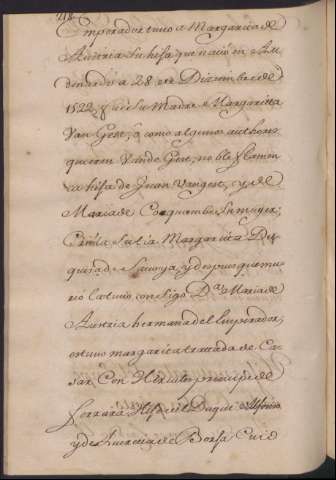 218
Emperador tuvo a Margarita de
Austria su hija que nació en Au
denardo a 28 de Dizembre de
1522, y su Madre Margaritta
Van Gest, o como algunos authores
quieren Vande Gest, noble flamen
ca hija de Juan Vangest, y de
Maria de Coquambe su muger,
Criola su tia Margarita Du
quesa de Savoya, y despues que mu
rio la tuvo consigo D.ª Maria de
Austria hermana del Emperador,
estuvo margarita tratada de Ca
sar Con Hercules principe de
ferrara Hijo del Duque Alfonso
y de Lucrecia de Borja Cuio